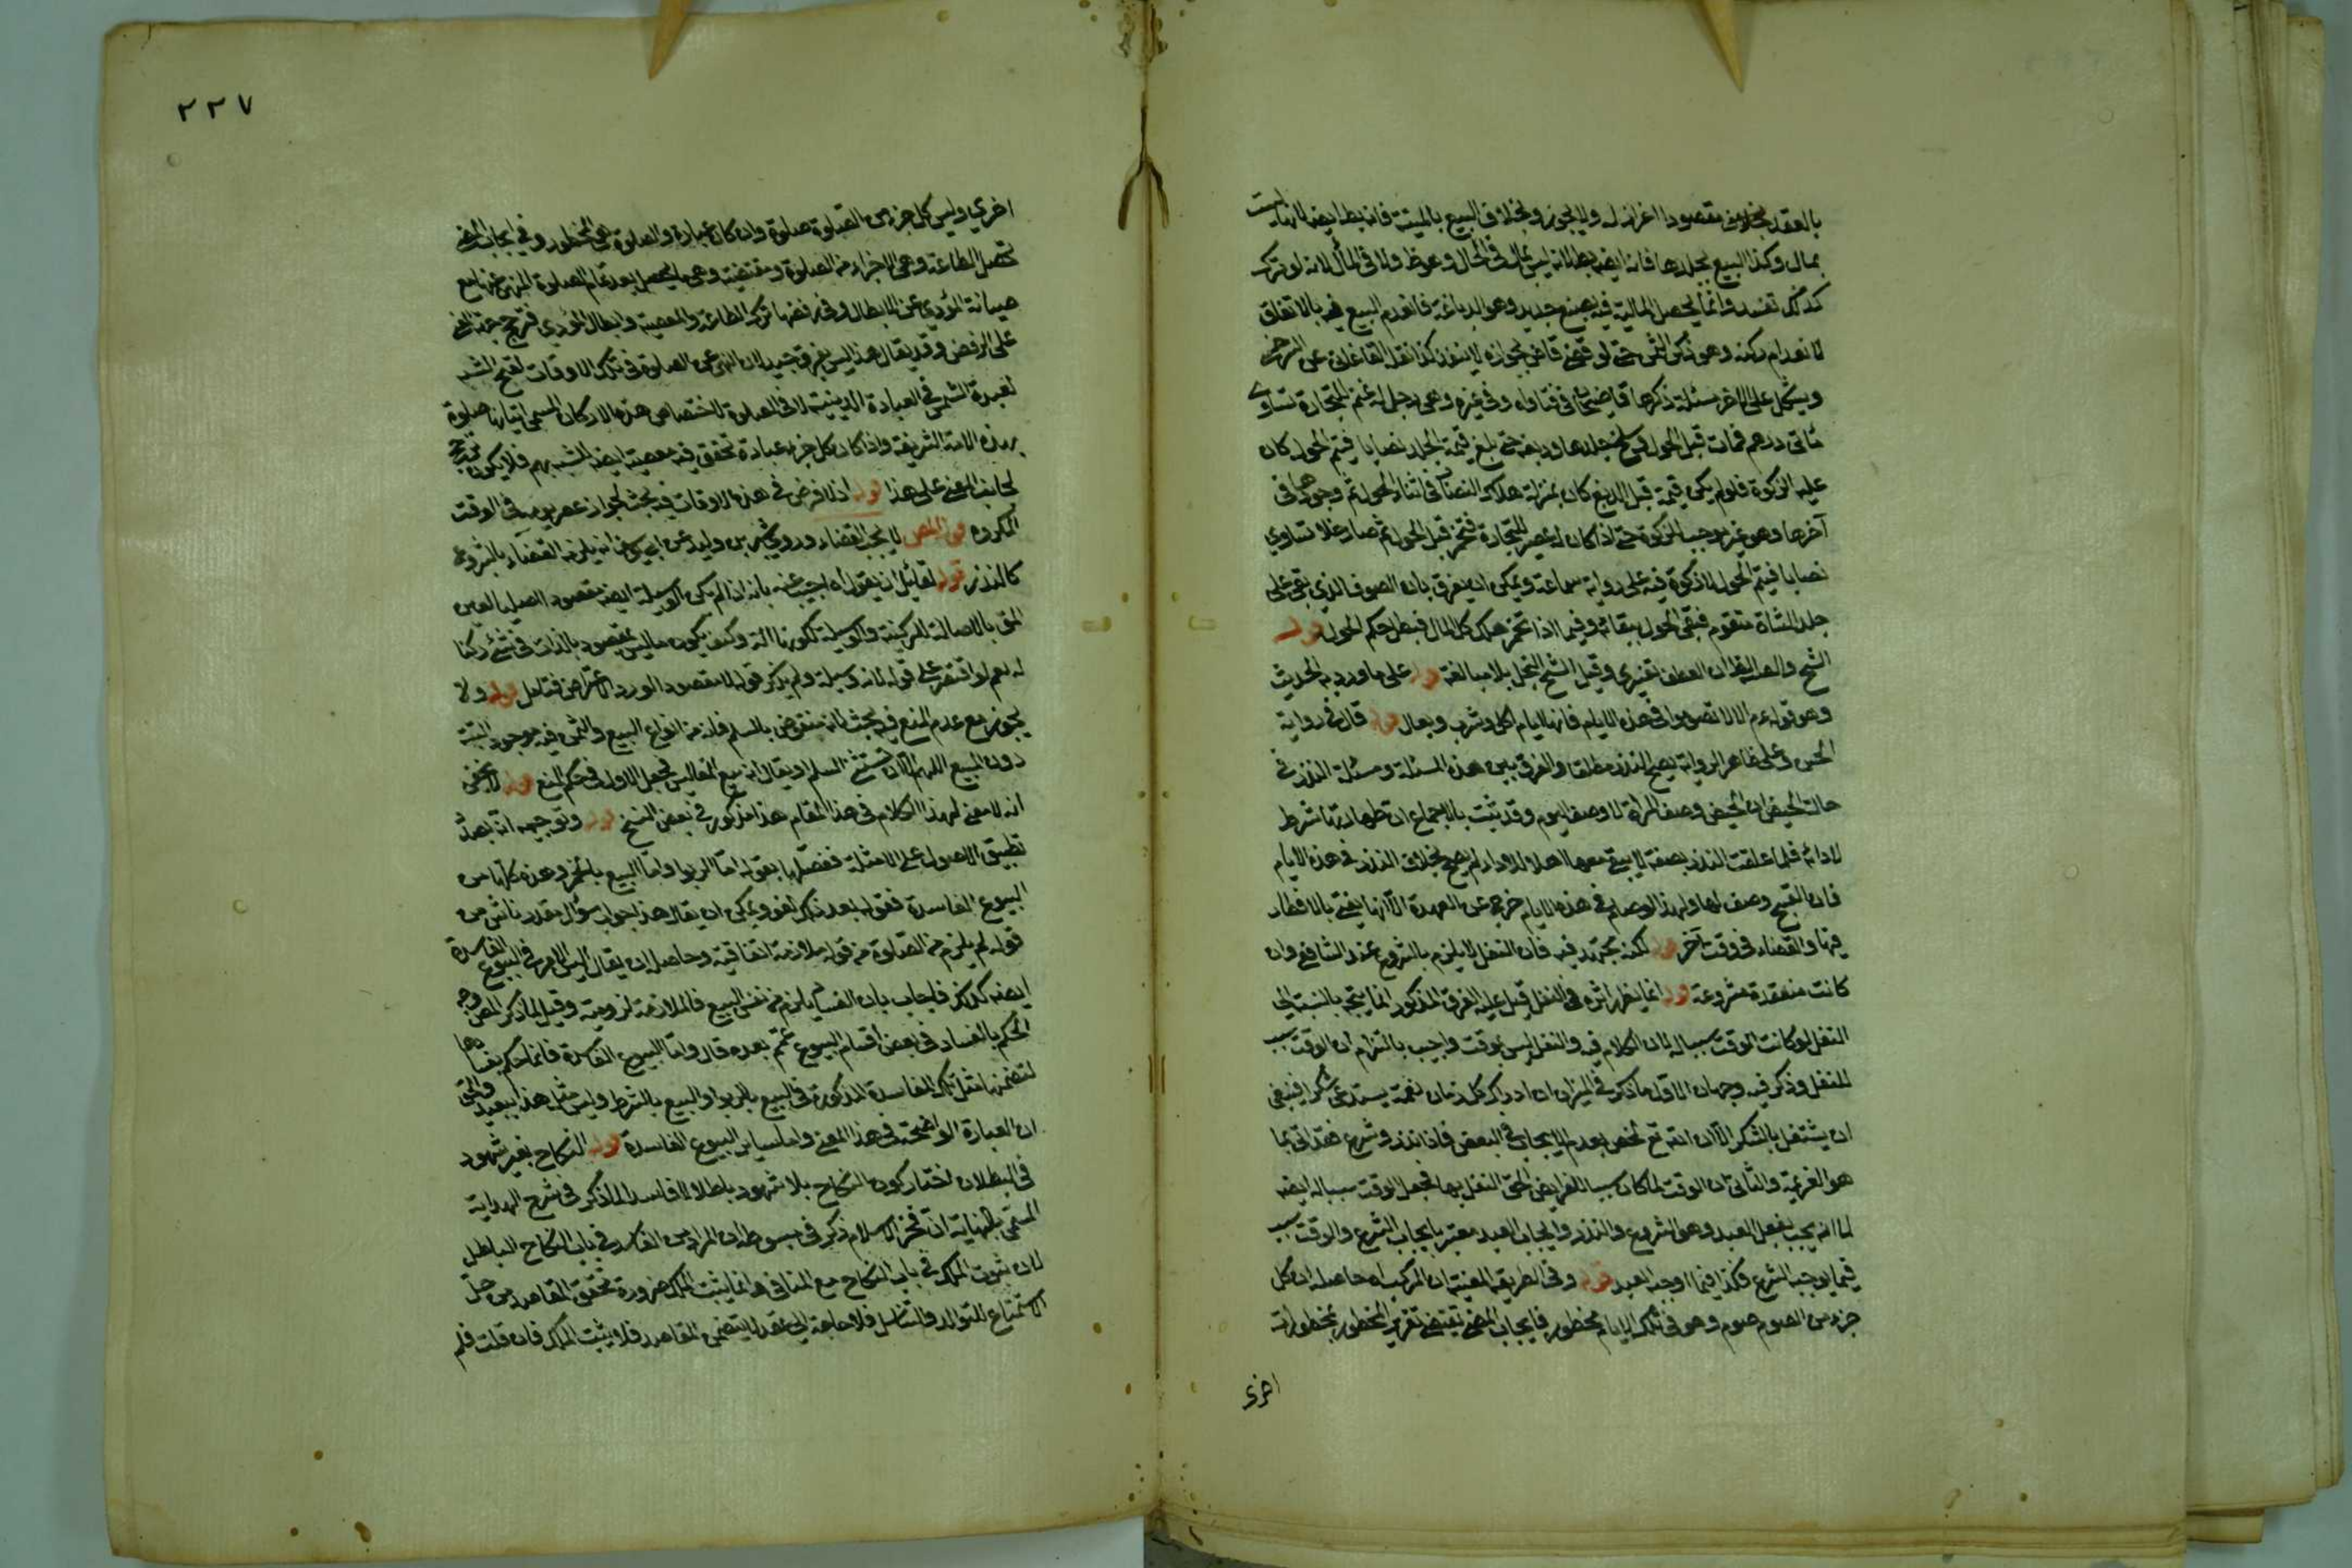 بالعقد بخلاف مقصودا اعزاز له ولا يجوز وبخلاف البيع بالميتة فانه بط ايضا لانها ليست
بمال وكذا البيع بجلدها فانه ايضا بط لانه ليس بمال في الحال وهو ظ ولا في المآل لانه لو ترك
كذلك تفسد وانما يحصل المالية فيه بصنع جديد وهو الدباغة فانعدم البيع فيه بالاتفاق
لانعدام ركنه وهو ركن الثمن حتى لو قضى قاض بجوازه لا ينفذ كذا نقله القاغاني عن السرخسي
ويشكل على الاخر مسئلة ذكرها قاضيخان في فتاواه وفي غيره وهي رجل له غنم للتجارة تساوى
مأتى درهم فماتت قبل الحول فسلخ جلدها ودبغه حتى بلغ قيمة الجلد نصابا فتم الحول كان
عليه الزكوة فلو لم يكن قيمة قبل الدبغ كان بمنزلة هلاك النصاب في اثناء الحول ثم وجودها في
آخرها وهو غير موجب للزكوة حتى اذا كان له عصير للتجارة فتخمر قبل الحول ثم صار خلا تساوي
نصابا فيتم الحول لا زكوة فيه على رواية سماعة ويمكن ان يفرق بان الصوف الذي بقى على
جلد الشاة متقوم فبقى الحول ببقائه وفيما اذا تخمر هلك كل المال فبطل حكم الحول قوله
الشح والضـ العطف تفسيرى وقيل الشح البخل بلا مبالغة قوله على ما ورد به الحديث
وهو قوله عم الا لا تصوموا في هذه الايام فانها ايام اكل وشرب وبعال قوله قال في رواية
الحسن وعلى ظاهر الرواية يصح النذر مطلقا والفرق بين هذه المسئلة ومسئلة النذر في
حالة الحيض ان الحيض وصف المرأة لا وصف اليوم وقد ثبت بالاجماع ان طهارتها شرط
لادائه فلما علقت النذر بصفة لا يبقى معها اهلا للاداء لم يصح بخلاف النذر في هذه الايام
فان القبح وصف لها ولهذا لو صام في هذه الايام خرج عن العهدة الا انها يفتى بالافطار
فيها والقضاء في وقت آخر قوله لكنه مجتهد فيه فان النفل لا يلزم بالشروع عند الشافعي وان
كانت منعقدة مشروعة قوله انما يظهر اثره في النفل قيل عليه الفرق المذكور انما يتجه بالنسبة الى
النفل لو كانت الوقت سببا له لان الكلام فيه والنفل ليس بوقت واجيب بالتزام ان الوقت سبب
للنفل وذكر فيه وجهان الاول ما ذكر في الميزان ان ادراك كل زمان نعمة يستدعى شكرا فينبغى
ان يشتغل بالشكر الا ان الله تع رخص بعدم الايجاب في البعض فاذا نذر وشرع فقد اتى بما
هو العزيمة والثاني ان الوقت لما كان سببا للفرايض الحق النفل بها فجعل الوقت سببا له ايضا
لما انه يجب بفعل العبد وهو الشروع والنذر وايجاب العبد معتبر بايجاب الشرع والوقت سبب
فيما يوجبه الشرع فكذا فيما اوجبه العبد قوله وفي الطريقة المعينية ان المركب اه حاصله ان كل
جزء من الصوم صوم وهو في تلك الايام محظور فايجاب المضى يقتضى تقرير المحظور بمحظور اية
اخرى
٢٢٧
اخرى وليس كل جزء من الصلوة صلوة وان كان عبادة والصلوة هي المحظور وفي ايجاب المضى
تحصل الطاعة وهي الاجزاء من الصلوة ومعصية وهي ما يحصل بعد تمام الصلوة المنهى عنها مع
صيانة المؤدي عن الابطال وفي رفضها ترك الطاعة والمعصية وابطال المؤدي فترجح جهة المضى
على الرفض وقد يقال هذا ليس بفرق جيد لان النهى عن الصلوة في تلك الاوقات لقبح التشبه
لعبدة الشمس في العبادة الدينية لا في الصلوة لاختصاص هذه الاركان المسمى اتيانها صلوة
بهذه الامة الشريفة واذا كان كل جزء عبادة تحقق فيه معصية ايضا للتشبه بهم فلا يكون ترجيح
لجانب المضى على هذا قوله اذ لا فرض في هذه الاوقات فيه بحث لجواز عصر يومه في الوقت
المكروه قوله المص لا يجب القضاء وروى بشر بن وليد عن ابي يوسف انه يلزمه القضاء بالشروع
كالنذر قوله لقائل ان يقول اه اجيب عنه بانه اذا لم يكن الوسيلة ايضا مقصود
بالاصالة للركنية والوسيلة لكونها آلة وكيف يكون ما ليس بمقصود بالذات في شئ ركنا
له نعم لو اقتصر على قوله لانه وسيلة ولم يذكر قوله لا مقصود لورد الاعتراض فتأمل قوله ولا
يجوز مع عدم المبيع فيه بحث لانه منقوض بالسلم فانه من انواع البيع والثمن فيه موجود البتة
دون المبيع اللهم الا ان تستثنى السلم او يقال انه بيع المفاليس فجعل الاول في حكم المبيع قوله لا يخفى
انه لا معنى لهذا الكلام في هذا المقام هذا مذكور في بعض النسخ قوله وتوجيهه انه بصدد
تطبيق الاصول على الامثلة ففصلها بقوله اما الربوا واما البيع بالخمر وهذه كلها من
البيوع الفاسدة فقوله بعد ذلك لغو ويمكن ان يقال هذا جواب سؤال مقدر ناش من
قوله لم يلزم من الصلوة من قوله ملازمة اتفاقية وحاصله ان يقال اليس الامر في البيوع الفاسدة
ايضا كذلك فاجاب بان الفساد يلزم من نفس البيع فالملازمة لزومية وقيل لما ذكر المص وجه
الحكم بالفساد في بعض اقسام البيوع عمم بعده قال واما البيوع الفاسدة فانما حكم بفسادها
لتضمنها مثل تلك المفاسدة المذكورة في البيع بالربوا والبيع بالشرط وليس مثل هذا ببعيد والحق
ان العبارة الواضحة في هذا المعنى واما سائر البيوع الفاسدة قوله النكاح بغير شهود
في البطلان اختار كون النكاح بلا شهود باطلا لا فاسدا لما ذكر في شرح الهداية
المسمى بالنهاية ان فخر الاسلام ذكر في مبسوطه ان المراد من الفاسد في باب النكاح الباطل
لان ثبوت الملك في باب النكاح مع المنافي وانما يثبت الملك ضرورة تحقق المقاصد من حل
الاستمتاع للتوالد والتناسل فلا حاجة الى عقد لا يتضمن المقاصد فلا يثبت الملك فان قلت فلم